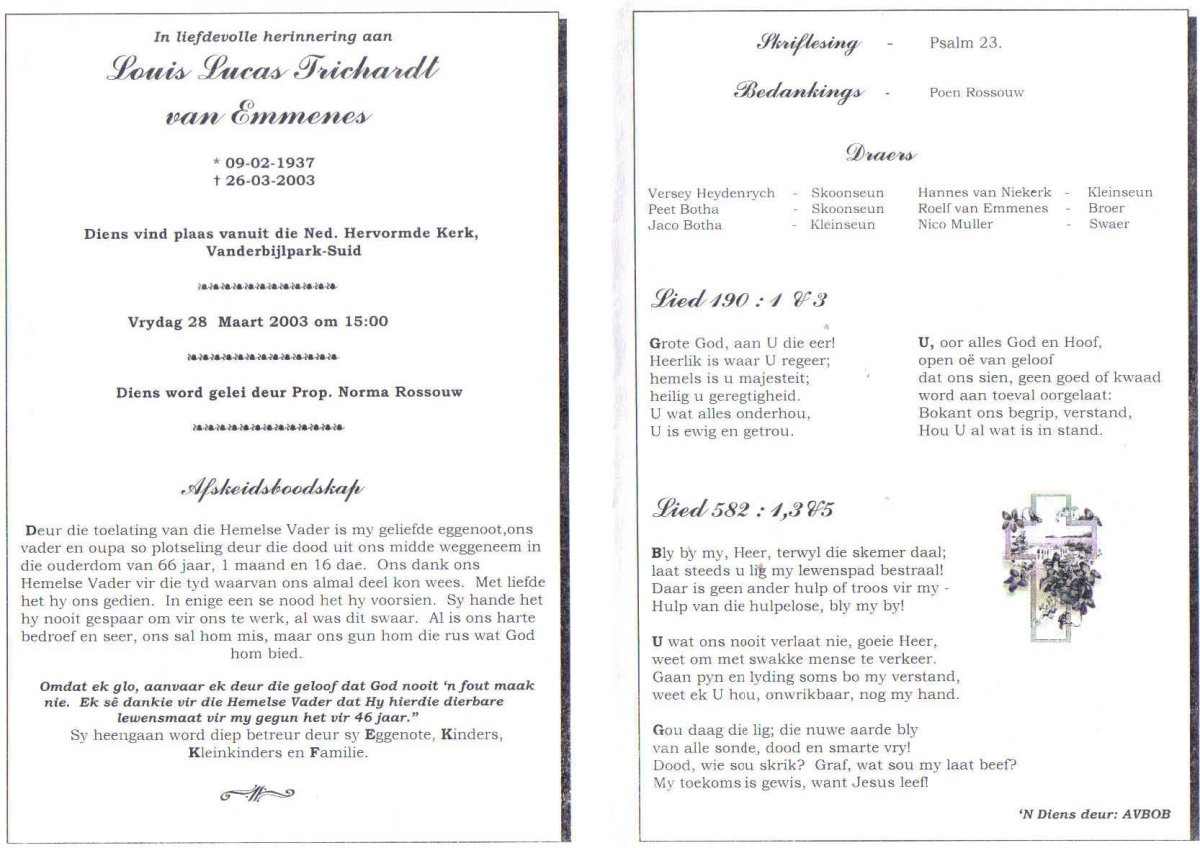 In liefdevolle herinnering aan
Louis Lucas Trichardt
van Emmenes
* 09-02-1937
† 26-03-2003
Diens vind plaas vanuit die Ned. Hervormde Kerk,
Vanderbijlpark-Suid
Vrydag 28 Maart 2003 om 15:00
Diens word gelei deur Prop. Norma Rossouw
Afskeidsboodskap
Deur die toelating van die Hemelse Vader is my geliefde eggenoot,ons
vader en oupa so plotseling deur die dood uit ons midde weggeneem in
die ouderdom van 66 jaar, 1 maand en 16 dae. Ons dank ons
Hemelse Vader vir die tyd waarvan ons almal deel kon wees. Met liefde
het hy ons gedien. In enige een se nood het hy voorsien. Sy hande het
hy nooit gespaar om vir ons te werk, al was dit swaar. Al is ons harte
bedroef en seer, ons sal hom mis, maar ons gun hom die rus wat God
hom bied.
Omdat ek glo, aanvaar ek deur die geloof dat God nooit 'n fout maak
nie. Ek sê dankie vir die Hemelse Vader dat Hy hierdie dierbare
lewensmaat vir my gegun het vir 46 jaar."
Sy heengaan word diep betreur deur sy Eggenote, Kinders,
Kleinkinders en Familie.
Skriflesing - Psalm 23.
Bedankings - Poen Rossouw
Draers
Versey Heydenrych - Skoonseun Hannes van Niekerk - Kleinseun
Peet Botha - Skoonseun Roelf van Emmenes - Broer
Jaco Botha - Kleinseun Nico Muller - Swaer
Lied 190 : 1 & 3
Grote God, aan U die eer!
Heerlik is waar U regeer;
hemels is u majesteit;
heilig u geregtigheid.
U wat alles onderhou,
U is ewig en getrou.
U, oor alles God en Hoof,
open oë van geloof
dat ons sien, geen goed of kwaad
word aan toeval oorgelaat:
Bokant ons begrip, verstand,
Hou U al wat is in stand.
Lied 582 : 1,3&5
Bly by my, Heer, terwyl die skemer daal;
laat steeds u lig my lewenspad bestraal!
Daar is geen ander hulp of troos vir my -
Hulp van die hulpelose, bly my by!
U wat ons nooit verlaat nie, goeie Heer,
weet om met swakke mense te verkeer.
Gaan pyn en lyding soms bo my verstand,
weet ek U hou, onwrikbaar, nog my hand.
Gou daag die lig; die nuwe aarde bly
van alle sonde, dood en smarte vry!
Dood, wie sou skrik? Graf, wat sou my laat beef?
My toekoms is gewis, want Jesus leef!
'N Diens deur: AVBOB